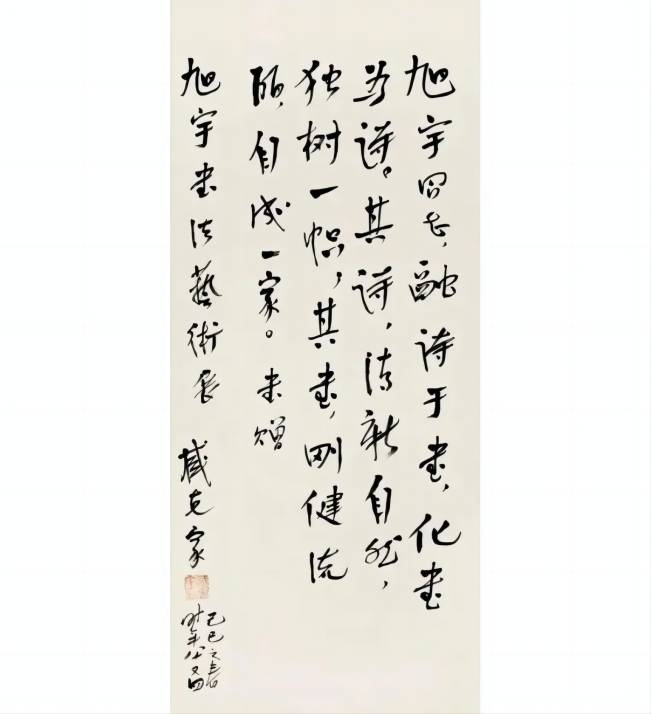 旭宇同志,融诗于书,化书
为诗。其诗,清新自然,
独树一帜,其书,刚健流
,自成一家。书赠
旭宇书法藝術展 臧克家
己巳之春
时年八十又四